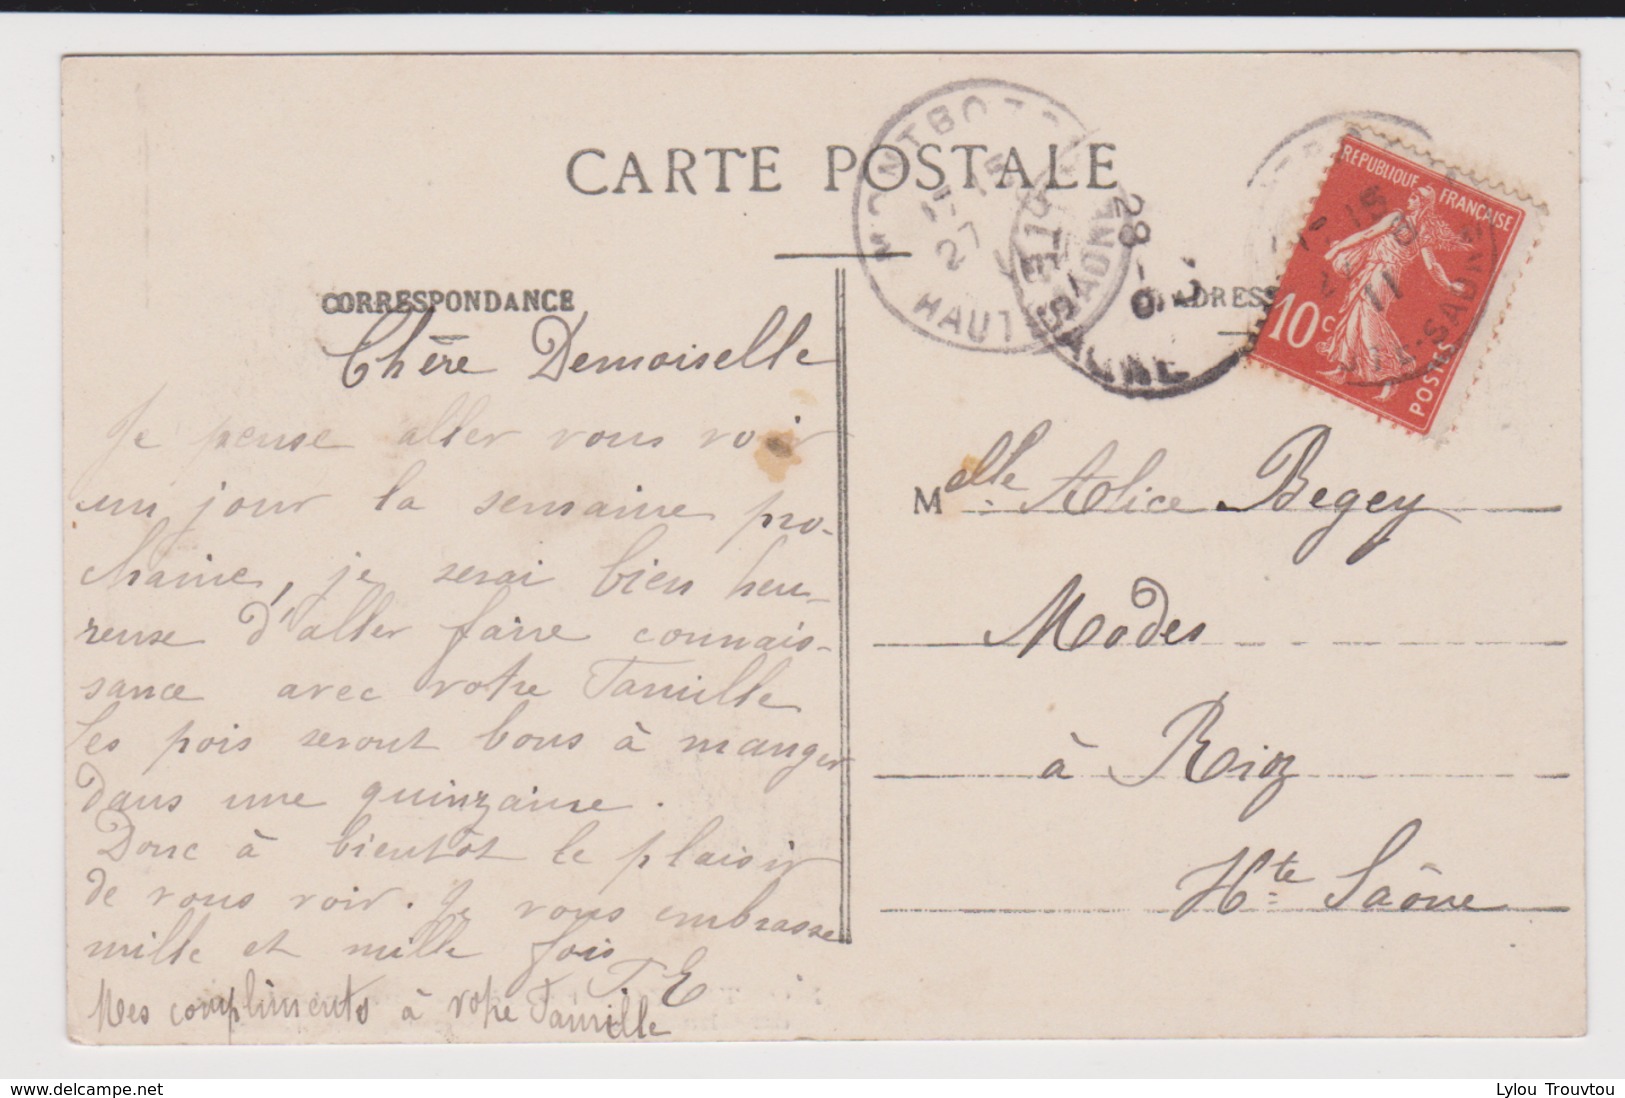 CARTE POSTALE
CORRESPONDANCE
Chère Demoiselle
Je pense aller vous voir
un jour la semaine pro-
chaine, je serai bien heu-
reuse d'aller faire connais-
sance avec votre Famille
Les pois seront bons à manger
dans une quinzaine.
Donc à bientôt le plaisir
de vous voir. Je vous embrasse
mille et mille fois
T. E
Mes compliments à votre Famille
MONTBOZON
27
HAUTE SAONE
28
SAONE
ADRESS
REPUBLIQUE FRANÇAISE
10c
POSTES
11
TE-SAONE
Melle: Alice Begey
Modes
à Rioz
Hte Saône
www.delcampe.net
Lylou Trouvtou